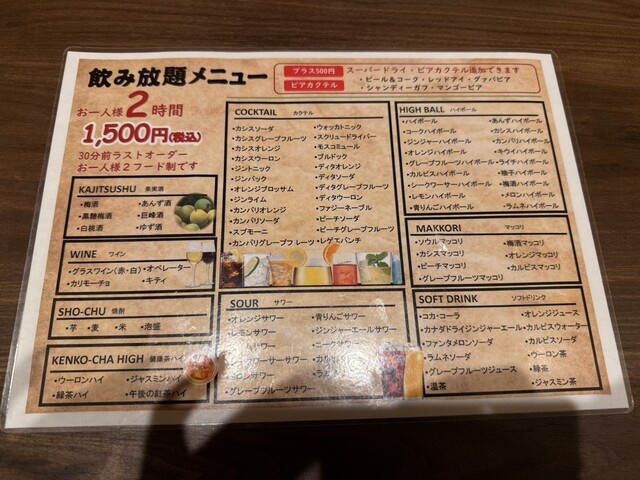 飲み放題メニュー
お一人様2時間
1,500円(税込)
30分前ラストオーダー
お一人様2フード制です
プラス500円 スーパードライ・ビアカクテル追加できます
ビアカクテル ・ビール&コーク・レッドアイ・グァバビア
・シャンディーガフ・マンゴービア
KAJITSUSHU 果実酒
・梅酒 ・あんず酒
・黒麹梅酒 ・巨峰酒
・白桃酒 ・ゆず酒
WINE ワイン
・グラスワイン(赤・白) ・オペレーター
・カリモーチョ ・キティ
SHO-CHU 焼酎
・芋 ・麦 ・米 ・泡盛
KENKO-CHA HIGH 健康茶ハイ
・ウーロンハイ ・ジャスミンハイ
・緑茶ハイ ・午後の紅茶ハイ
COCKTAIL カクテル
・カシスソーダ ・ウォッカトニック
・カシスグレープフルーツ ・スクリュードライバー
・カシスオレンジ ・モスコミュール
・カシスウーロン ・ブルドック
・ジントニック ・ディタオレンジ
・ジンバック ・ディタソーダ
・オレンジブロッサム ・ディタグレープフルーツ
・ジンライム ・ディタウーロン
・カンパリオレンジ ・ファジーネーブル
・カンパリソーダ ・ピーチソーダ
・スプモーニ ・ピーチグレープフルーツ
・カンパリグレープフルーツ ・レゲエパンチ
SOUR サワー
・オレンジサワー ・青りんごサワー
・レモンサワー ・ジンジャーエールサワー
サワー ・コークサワー
サワー
サワー
・グレープフルーツサワー
HIGH BALL ハイボール
・ハイボール ・あんずハイボール
・コークハイボール ・カシスハイボール
・ジンジャーハイボール ・カンパリハイボール
・オレンジハイボール ・キウイハイボール
・グレープフルーツハイボール ・ライチハイボール
・カルピスハイボール ・柚子ハイボール
・シークワーサーハイボール ・梅酒ハイボール
・レモンハイボール ・メロンハイボール
・青りんごハイボール ・ラムネハイボール
MAKKORI マッコリ
・ソウルマッコリ ・梅酒マッコリ
・カシスマッコリ ・オレンジマッコリ
・ピーチマッコリ ・カルピスマッコリ
・グレープフルーツマッコリ
SOFT DRINK ソフトドリンク
・コカ・コーラ ・オレンジジュース
・カナダドライジンジャーエール ・カルピスウォーター
・ファンタメロンソーダ ・カルピスソーダ
・ラムネソーダ ・ウーロン茶
・グレープフルーツジュース ・緑茶
・温茶 ・ジャスミン茶